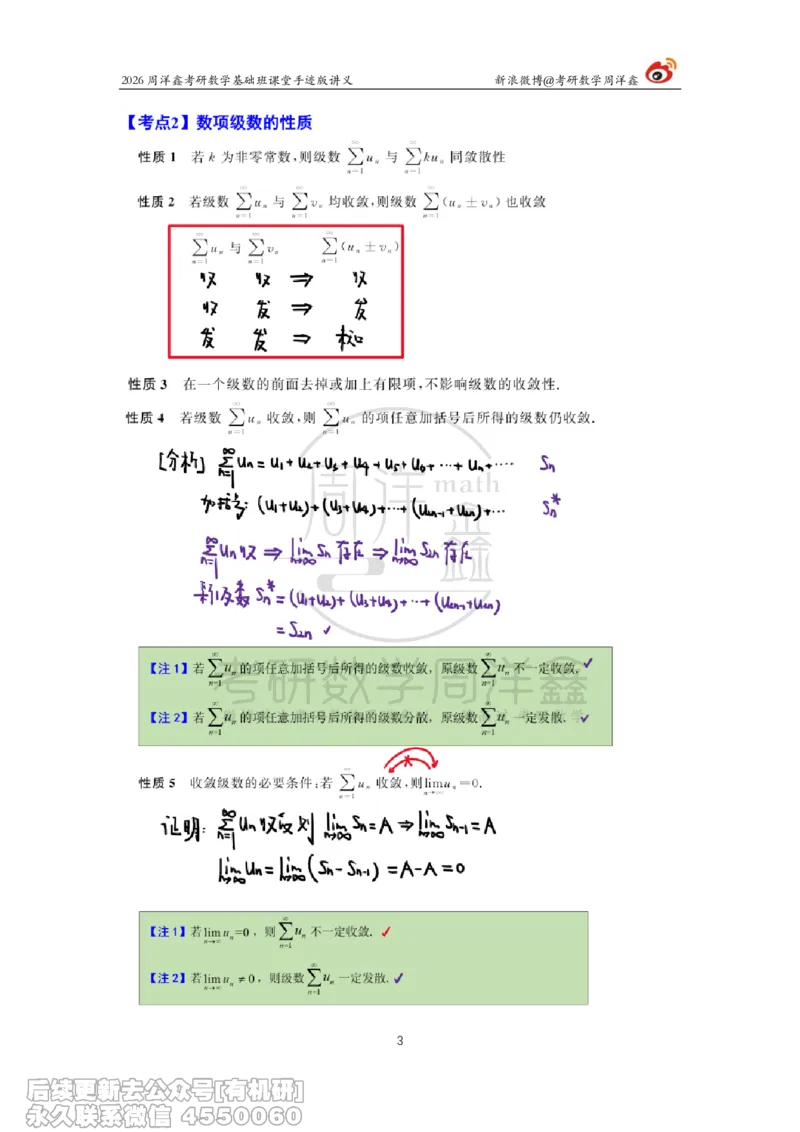 2026 周洋鑫考研数学基础班课堂手迹版讲义 新浪微博@考研数学周洋鑫
【考点2】数项级数的性质
性质 1 若 k 为非零常数,则级数 ∑_{n=1}^{∞} u_n 与 ∑_{n=1}^{∞} ku_n 同敛散性
性质 2 若级数 ∑_{n=1}^{∞} u_n 与 ∑_{n=1}^{∞} v_n 均收敛,则级数 ∑_{n=1}^{∞} (u_n ± v_n) 也收敛
∑_{n=1}^{∞} u_n 与 ∑_{n=1}^{∞} v_n ∑_{n=1}^{∞} (u_n ± v_n)
收 收 ⇒ 收
收 发 ⇒ 发
发 发 ⇒
性质 3 在一个级数的前面去掉或加上有限项,不影响级数的收敛性.
性质 4 若级数 ∑_{n=1}^{∞} u_n 收敛,则 ∑_{n=1}^{∞} u_n 的项任意加括号后所得的级数仍收敛.
[分析] ∑_{n=1}^{∞} u_n = u_1 + u_2 + u_3 + u_4 + u_5 + u_6 + ⋯ + u_n + ⋯ S_n
加括号: (u_1+u_2)+(u_3+u_4)+⋯+(u_{2n-1}+u_{2n})+⋯ S_n^*
∑_{n=1}^{∞} u_n 收 ⇒ lim_{n→∞} S_n 存在 ⇒ lim_{n→∞} S_{2n} 存在
新级数 S_n^* = (u_1+u_2)+(u_3+u_4)+⋯+(u_{2n-1}+u_{2n})
= S_{2n} ✓
【注 1】若 ∑_{n=1}^{∞} u_n 的项任意加括号后所得的级数收敛，原级数 ∑_{n=1}^{∞} u_n 不一定收敛. ✓
【注 2】若 ∑_{n=1}^{∞} u_n 的项任意加括号后所得的级数分散，原级数 ∑_{n=1}^{∞} u_n 一定发散. ✓
性质 5 收敛级数的必要条件:若 ∑_{n=1}^{∞} u_n 收敛,则 lim_{n→∞} u_n = 0.
证明: ∑_{n=1}^{∞} u_n 收敛 则 lim_{n→∞} S_n = A ⇒ lim_{n→∞} S_{n-1} = A
lim_{n→∞} u_n = lim_{n→∞} (S_n - S_{n-1}) = A - A = 0
【注 1】若 lim_{n→∞} u_n = 0，则 ∑_{n=1}^{∞} u_n 不一定收敛. ✓
【注 2】若 lim_{n→∞} u_n ≠ 0，则级数 ∑_{n=1}^{∞} u_n 一定发散. ✓
3
周洋鑫 math
考研数学周洋鑫
后续更新去公众号[有机研]
永久联系微信 4550060